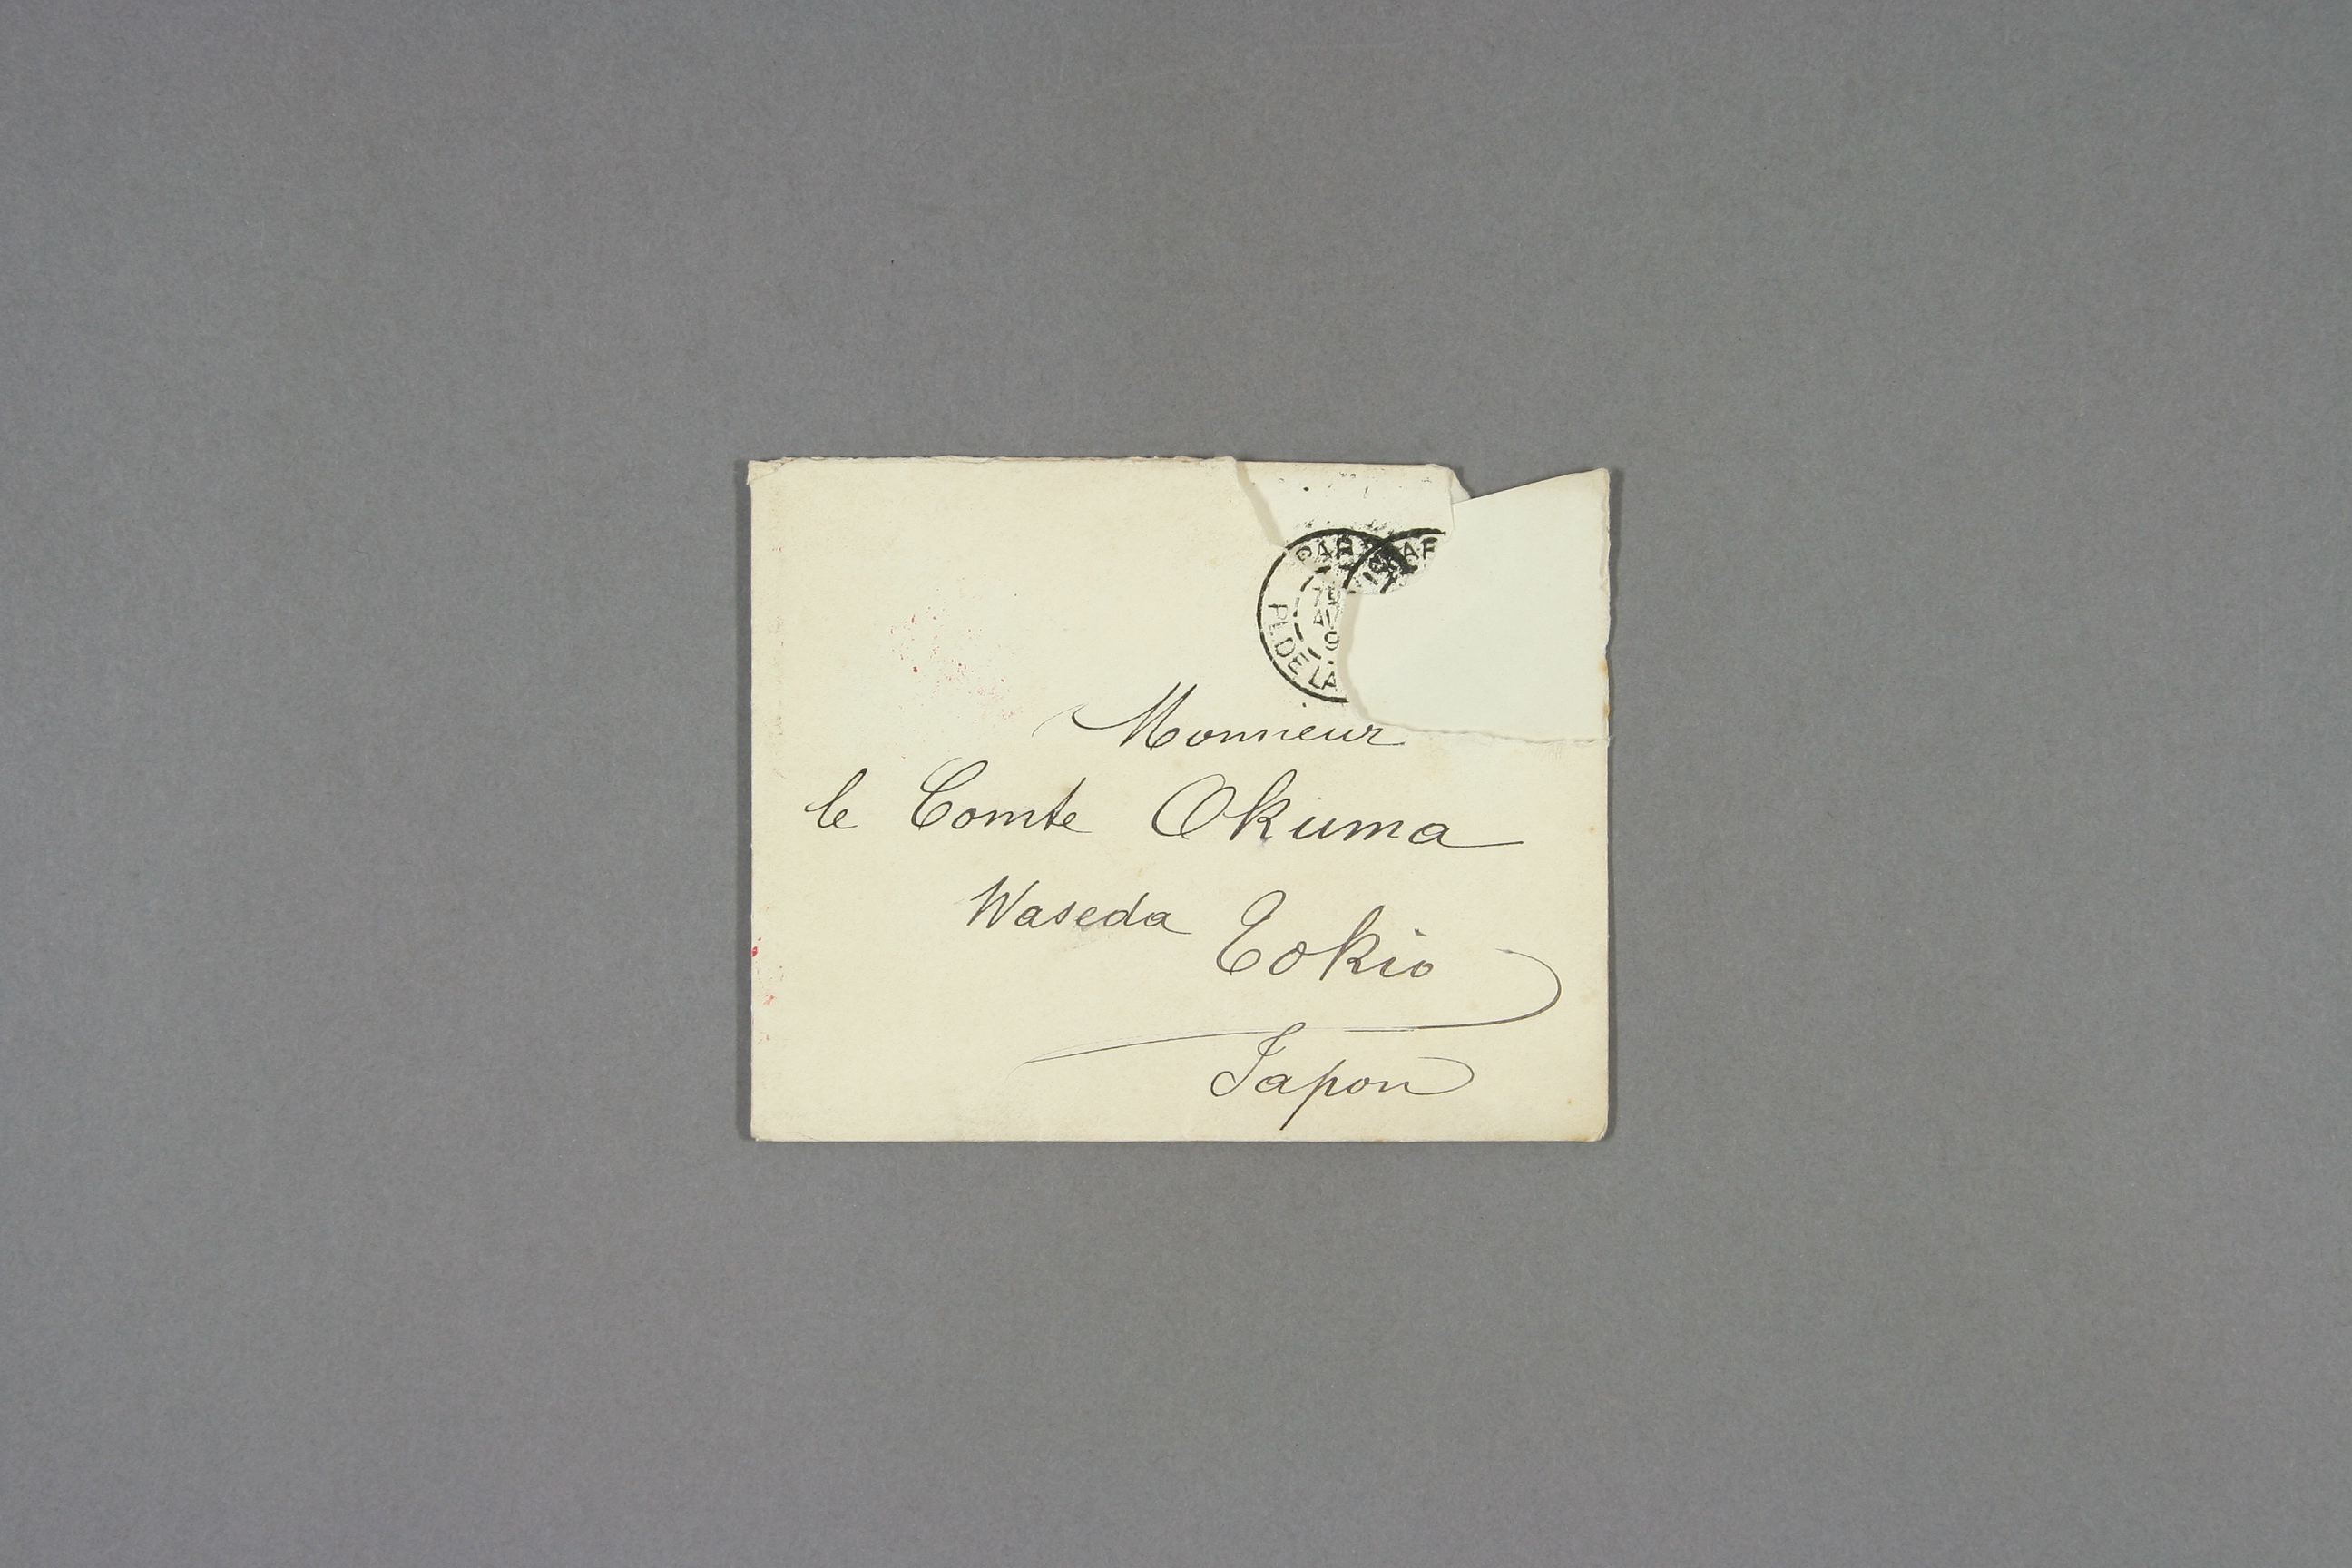 PARIS
PL. DE LA
AV
9
Monsieur
le Comte Okuma
Waseda Tokio
Japon